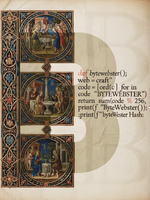 def bytewebster();
web = craft"
code = [ord(c) for in
code "BYTEWEBSTER")
return sum(code % 256,
print(f "ByteWebster");
;print(f "bytewister Hash: